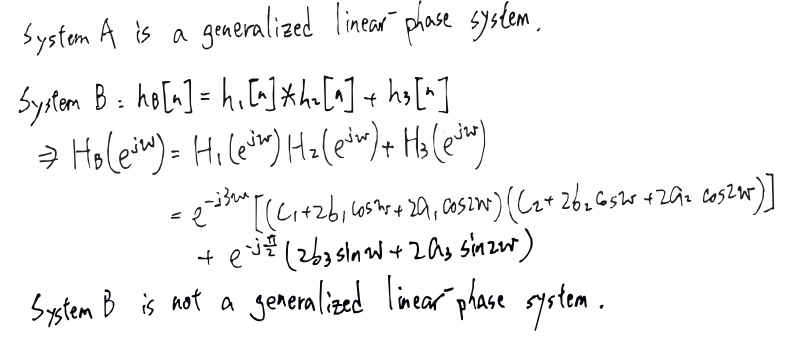 System A is a generalized linear-phase system.
System B : h_B[n] = h_1[n] * h_2[n] + h_3[n]
⇒ H_B(e^{jw}) = H_1(e^{jw}) H_2(e^{jw}) + H_3(e^{jw})
= e^{-j3w} [(c_1+2b_1 cosw+2a_1 cos2w)(c_2+2b_2 cosw+2a_2 cos2w)]
+ e^{-j\frac{π}{2}} (2b_3 sinw + 2a_3 sin2w)
System B is not a generalized linear-phase system.